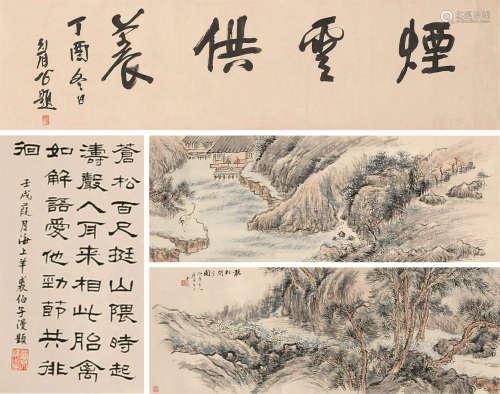 煙雲供養
丁酉冬日
題
蒼松百尺挺山隈時起
濤聲入耳來相此胎禽
如解語愛他勁節共徘
徊
壬戌葭月海上華裘伯子漫題
聽松圖